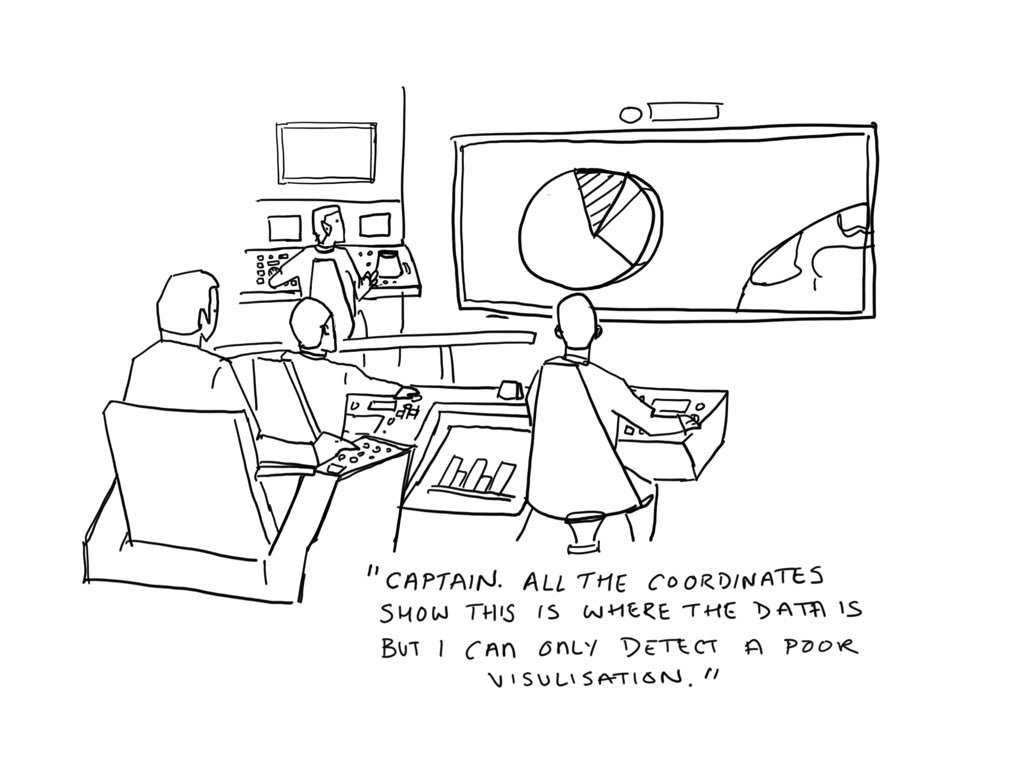 "CAPTAIN. ALL THE COORDINATES
SHOW THIS IS WHERE THE DATA IS
BUT I CAN ONLY DETECT A POOR
VISULISATION."